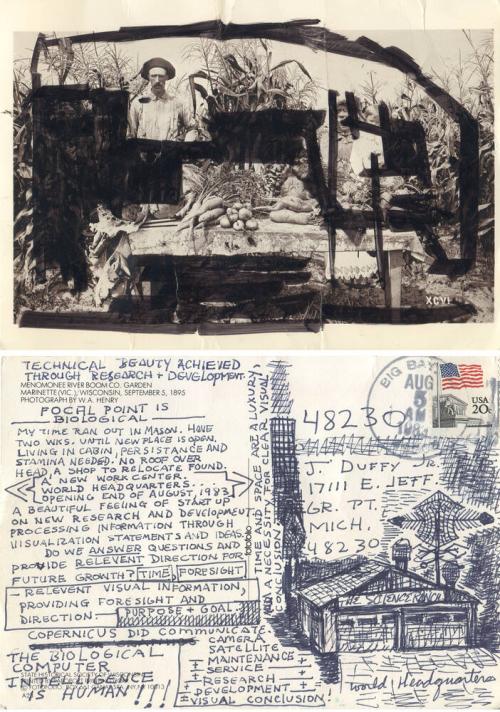 XCVI
TECHNICAL BEAUTY ACHIEVED
THROUGH RESEARCH & DEVELOPMENT.
MENOMONEE RIVER BOOM CO. GARDEN
MARINETTE (VIC.), WISCONSIN, SEPTEMBER 5, 1895
PHOTOGRAPH BY W.A. HENRY
POCAL POINT IS
BIOLOGICAL
MY TIME RAN OUT IN MASON. HAVE
TWO WKS. UNTIL NEW PLACE IS OPEN.
LIVING IN CABIN, PERSISTANCE AND
STAMINA NEEDED. NO ROOF OVER
HEAD. A SHOP TO RELOCATE FOUND.
A NEW WORK CENTER.
WORLD HEADQUARTERS.
OPENING END OF AUGUST, 1983
A BEAUTIFUL FEELING OF START UP
ON NEW RESEARCH AND DEVELOPMENT
PROCESSING INFORMATION THROUGH
VISUALIZATION STATEMENTS AND IDEAS.
DO WE ANSWER QUESTIONS AND
PROVIDE RELEVENT DIRECTION FOR
FUTURE GROWTH? TIME, FORESIGHT
RELEVENT VISUAL INFORMATION,
PROVIDING FORESIGHT AND
DIRECTION PURPOSE & GOAL.
COPERNICUS DID COMMUNICATE.
THE BIOLOGICAL
COMPUTER
STATE HISTORICAL SOCIETY OF
INTELLIGENCE
IS HUMAN!!!!
TIME AND SPACE ARE A LUXURY,
CLEAR VISUAL
fotofolio
CAMERA
SATELLITE
MAINTENANCE
SERVICE
RESEARCH
DEVELOPMENT
VISUAL CONCLUSION!
BIG BAY
AUG
5
USA
20c
48230
J. DUFFY JR.
17111 E. JEFF.
GR. PT.
MICH.
48230
THE SCIENCE RANCH
World Headquarters